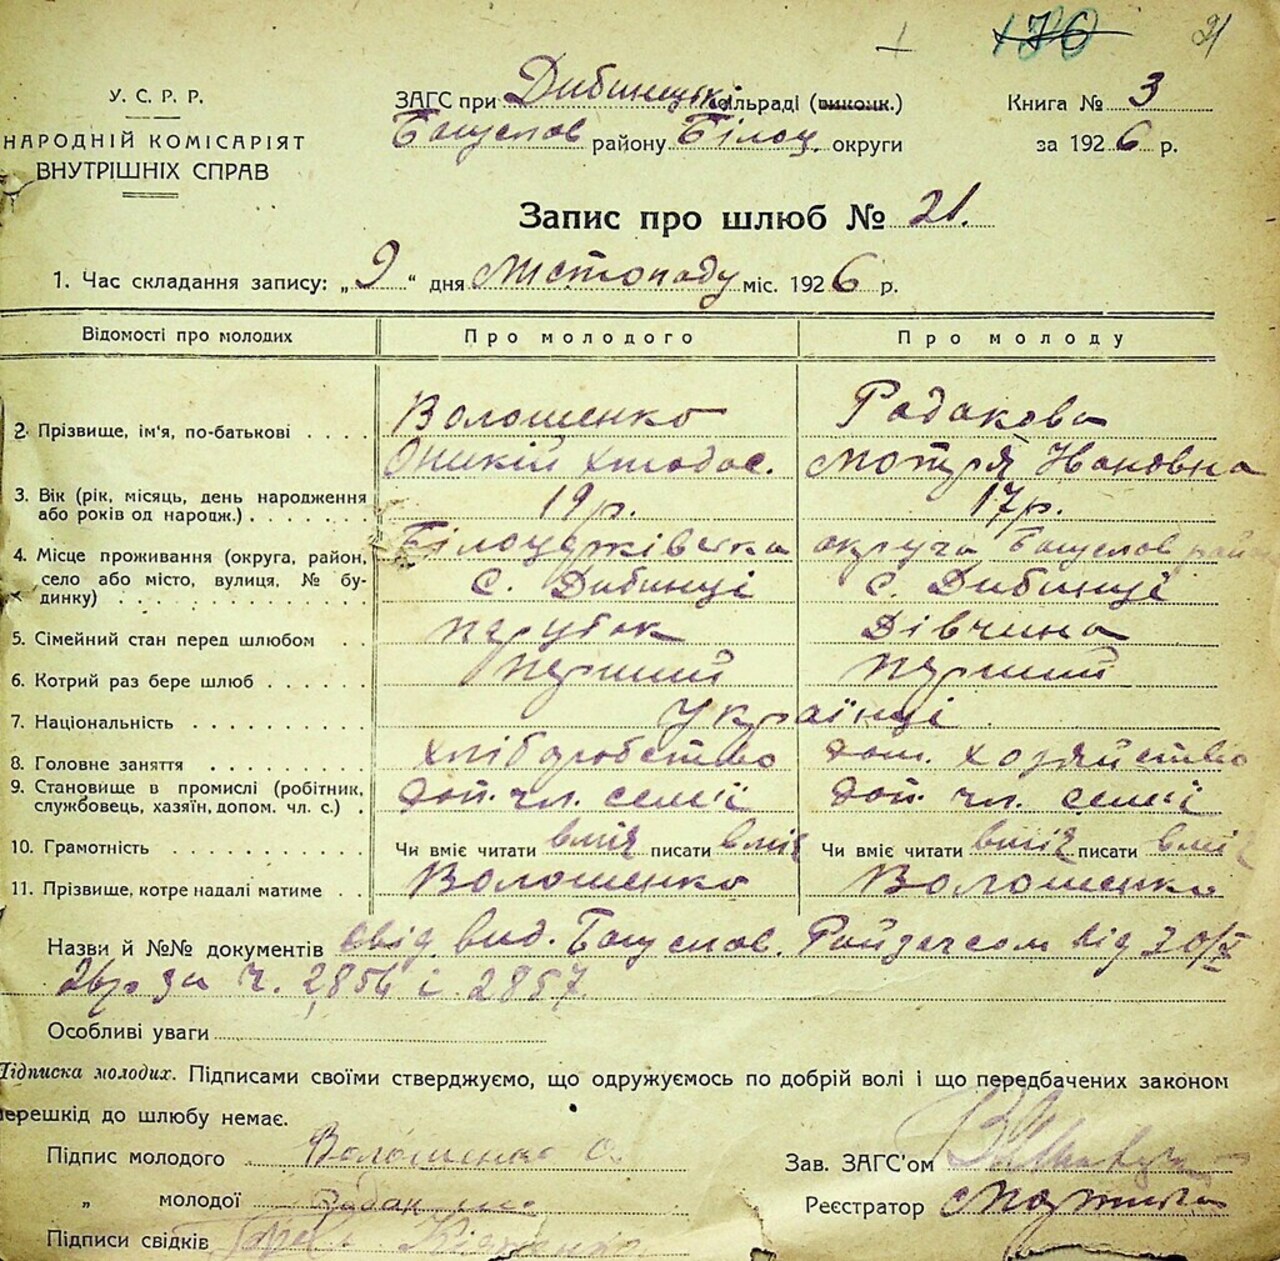 176 21
У. С. Р. Р.
НАРОДНІЙ КОМІСАРІЯТ
ВНУТРІШНІХ СПРАВ
ЗАГС при Дибинецькі сільраді (виконк.)
Богуслов району Білоц. округи
Книга № 3
за 1926 р.
Запис про шлюб № 21.
1. Час складання запису: „9“ дня Листопаду міс. 1926 р.
Відомості про молодих Про молодого Про молоду
2. Прізвище, ім'я, по-батькові . . . . Волошенко Радакова
Оникій Хтодос. Мотря Івановна
3. Вік (рік, місяць, день народження або років од народж.) . . . . . . . 19 р. 17 р.
4. Місце проживання (округа, район, село або місто, вулиця, № будинку) . . . . . . . Білоцерківська округа Богуслов рай
с. Дибинці с. Дибинці
5. Сімейний стан перед шлюбом . . парубок Дівчина
6. Котрий раз бере шлюб . . . . . . перший перший
7. Національність . . . . . . . . . . Українці
8. Головне заняття . . . . . . . . хліборобство дом. хозяйство
9. Становище в промислі (робітник, службовець, хазяїн, допом. чл. с.) . доп. чл. семї доп. чл. семї
10. Грамотність . . . . . . . . . . Чи вміє читати вміє писати вміє Чи вміє читати вміє писати вміє
11. Прізвище, котре надалі матиме . . Волошенко Волошенко
Назви й №№ документів свід. вид. Богуслов. Райзагсом від 30/X
26 р за ч. 2856 і 2857
Особливі уваги
Підписка молодих. Підписами своїми стверджуємо, що одружуємось по добрій волі і що передбачених законом
перешкід до шлюбу немає.
Підпис молодого Волошенко О.
„ молодої
Підписи свідків
Зав. ЗАГС'ом
Реєстратор